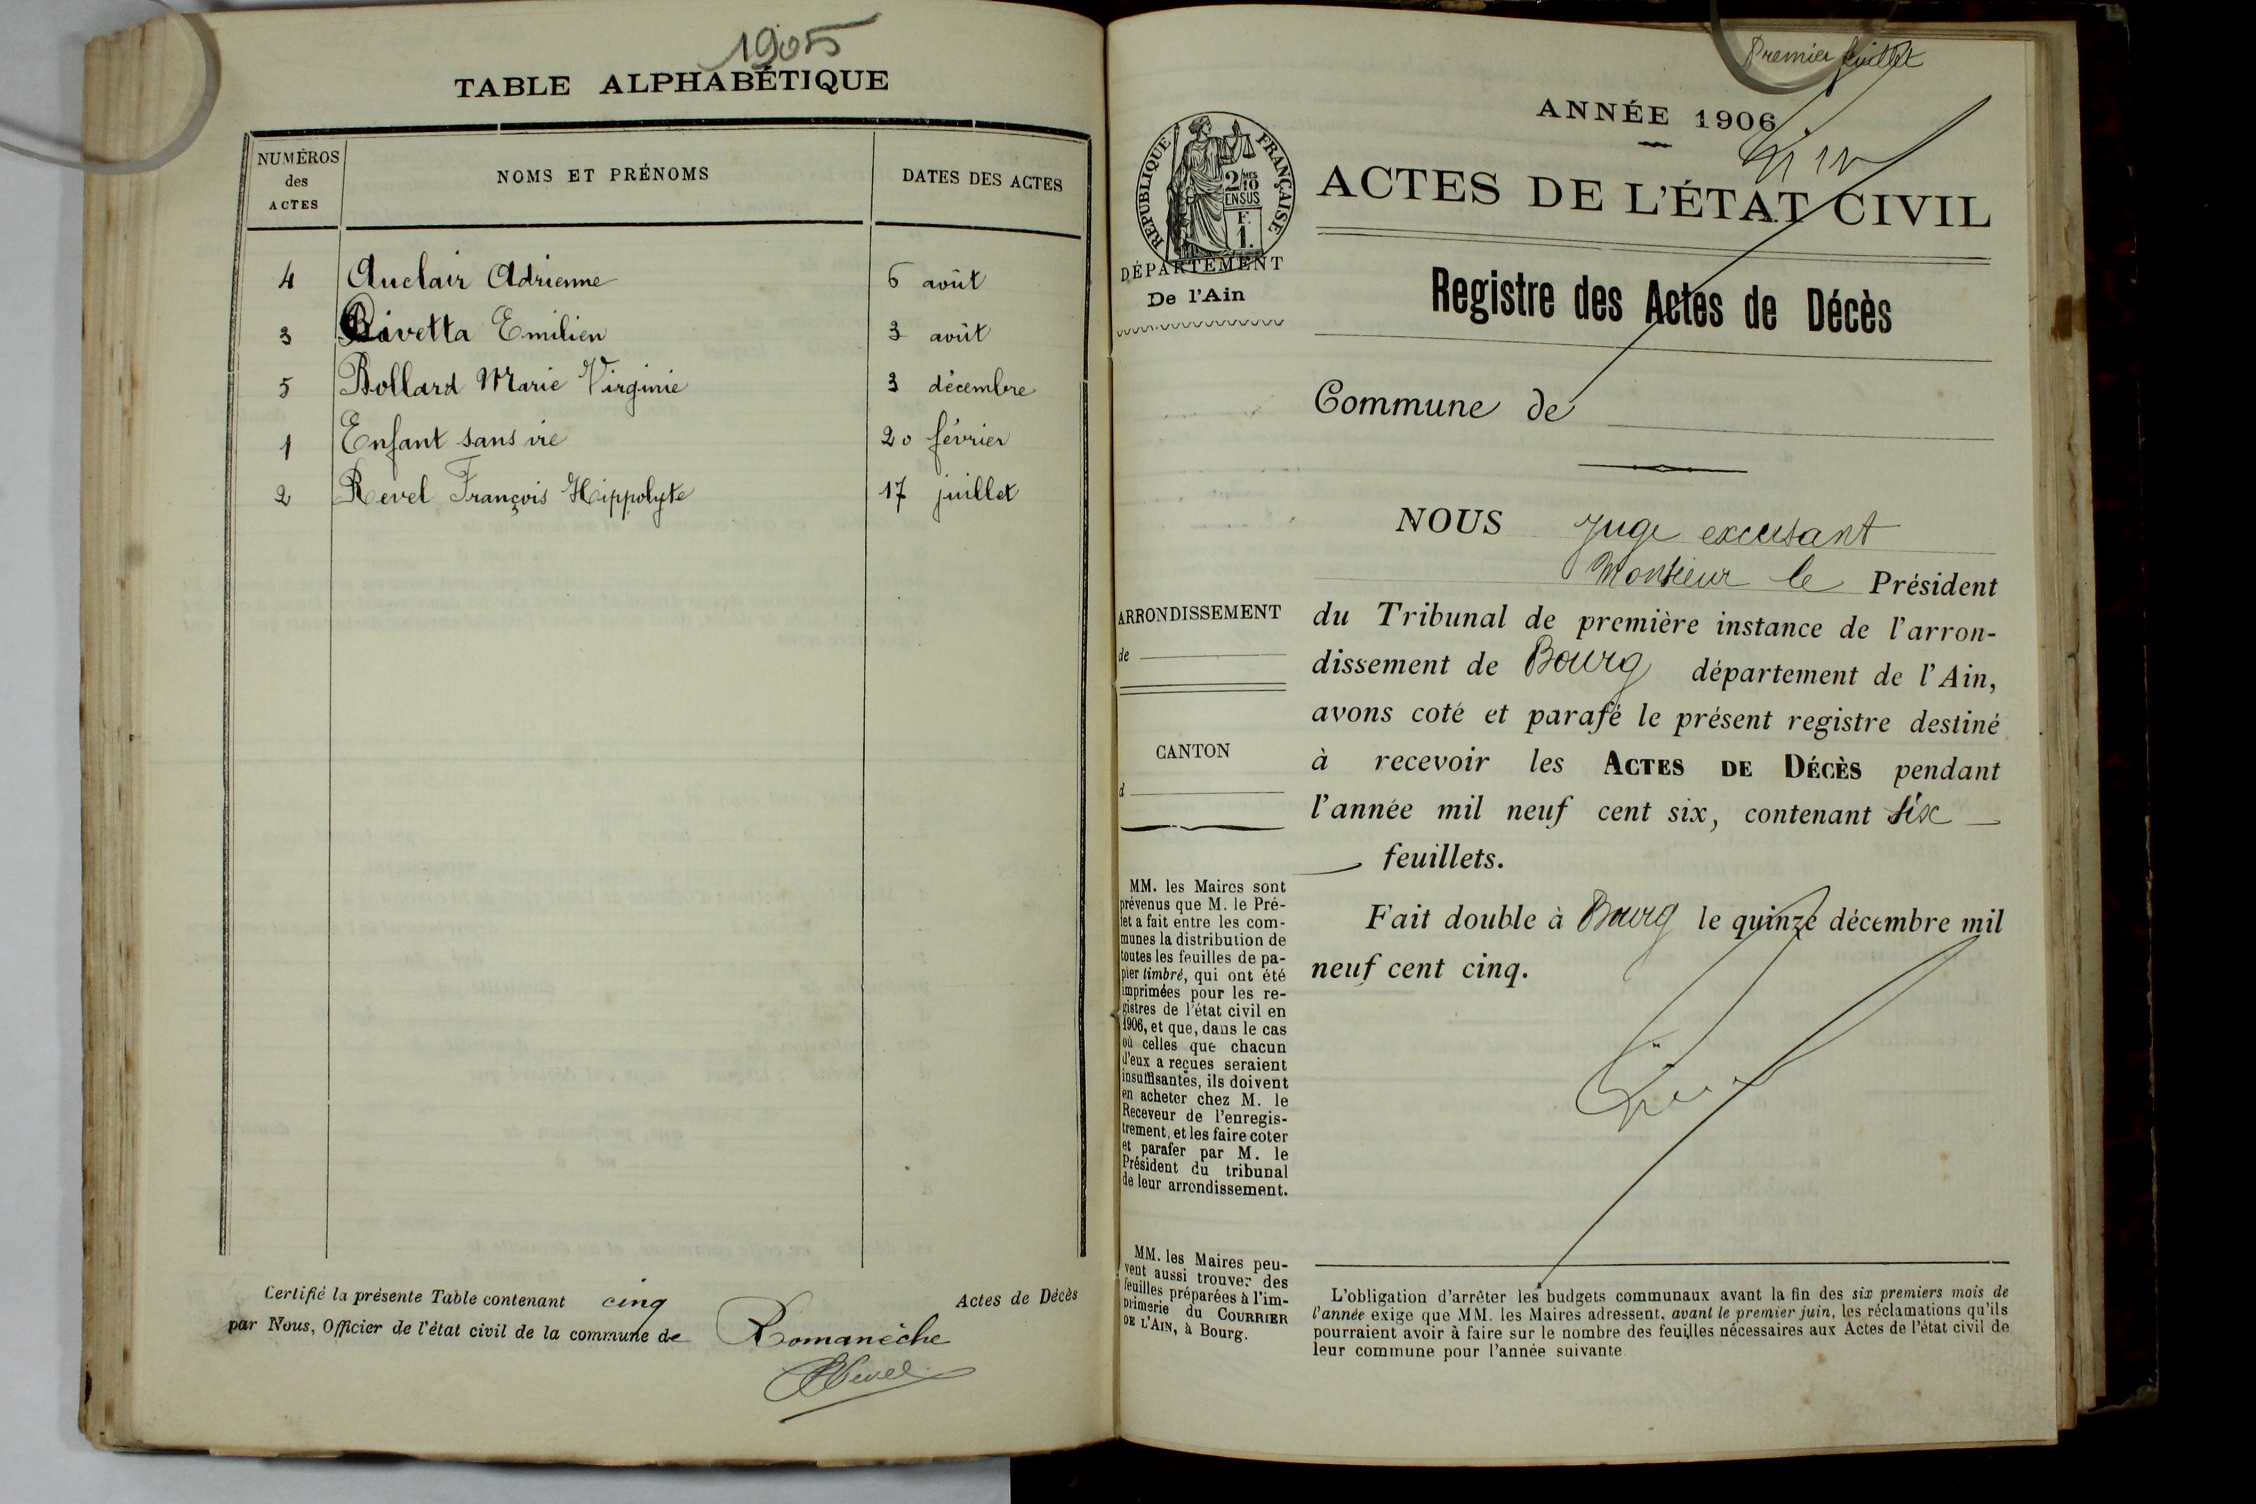 1905
TABLE ALPHABÉTIQUE
NUMÉROS des ACTES NOMS ET PRÉNOMS DATES DES ACTES
4 Auclair Adrienne 6 août
3 Bivetta Emilien 3 août
5 Bollard Marie Virginie 3 décembre
1 Enfant sans vie 20 février
2 Revel François Hippolyte 17 juillet
Certifié la présente Table contenant cinq Actes de Décès
par Nous, Officier de l'état civil de la commune de Romanèche
Revel
Premier feuillet
ANNÉE 1906
ACTES DE L'ÉTAT CIVIL
RÉPUBLIQUE FRANÇAISE
2/10 MES
EN SUS
F.
1.
DÉPARTEMENT
De l'Ain
Registre des Actes de Décès
Commune de
NOUS Juge excusant
Monsieur le Président
du Tribunal de première instance de l'arron-
dissement de Bourg département de l'Ain,
avons coté et parafé le présent registre destiné
à recevoir les ACTES DE DÉCÈS pendant
l'année mil neuf cent six, contenant six
feuillets.
Fait double à Bourg le quinze décembre mil
neuf cent cinq.
ARRONDISSEMENT
de
CANTON
d
MM. les Maires sont
prévenus que M. le Pré-
fet a fait entre les com-
munes la distribution de
toutes les feuilles de pa-
pier timbré, qui ont été
imprimées pour les re-
gistres de l'état civil en
1906, et que, dans le cas
où celles que chacun
d'eux a reçues seraient
insuffisantes, ils doivent
en acheter chez M. le
Receveur de l'enregis-
trement, et les faire coter
et parafer par M. le
Président du tribunal
de leur arrondissement.
MM. les Maires peu-
vent aussi trouver des
feuilles préparées à l'im-
primerie du COURRIER
DE L'AIN, à Bourg.
L'obligation d'arrêter les budgets communaux avant la fin des six premiers mois de
l'année exige que MM. les Maires adressent, avant le premier juin, les réclamations qu'ils
pourraient avoir à faire sur le nombre des feuilles nécessaires aux Actes de l'état civil de
leur commune pour l'année suivante